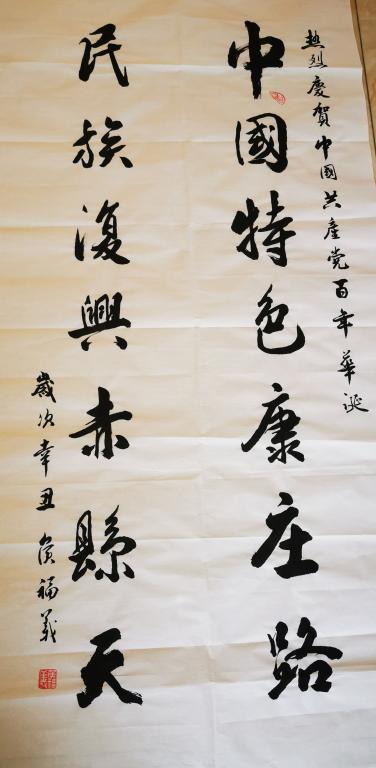 热烈慶贺中国共產党百年華诞
中國特色康庄路
民族復興赤縣天
歲次辛丑 侯福義